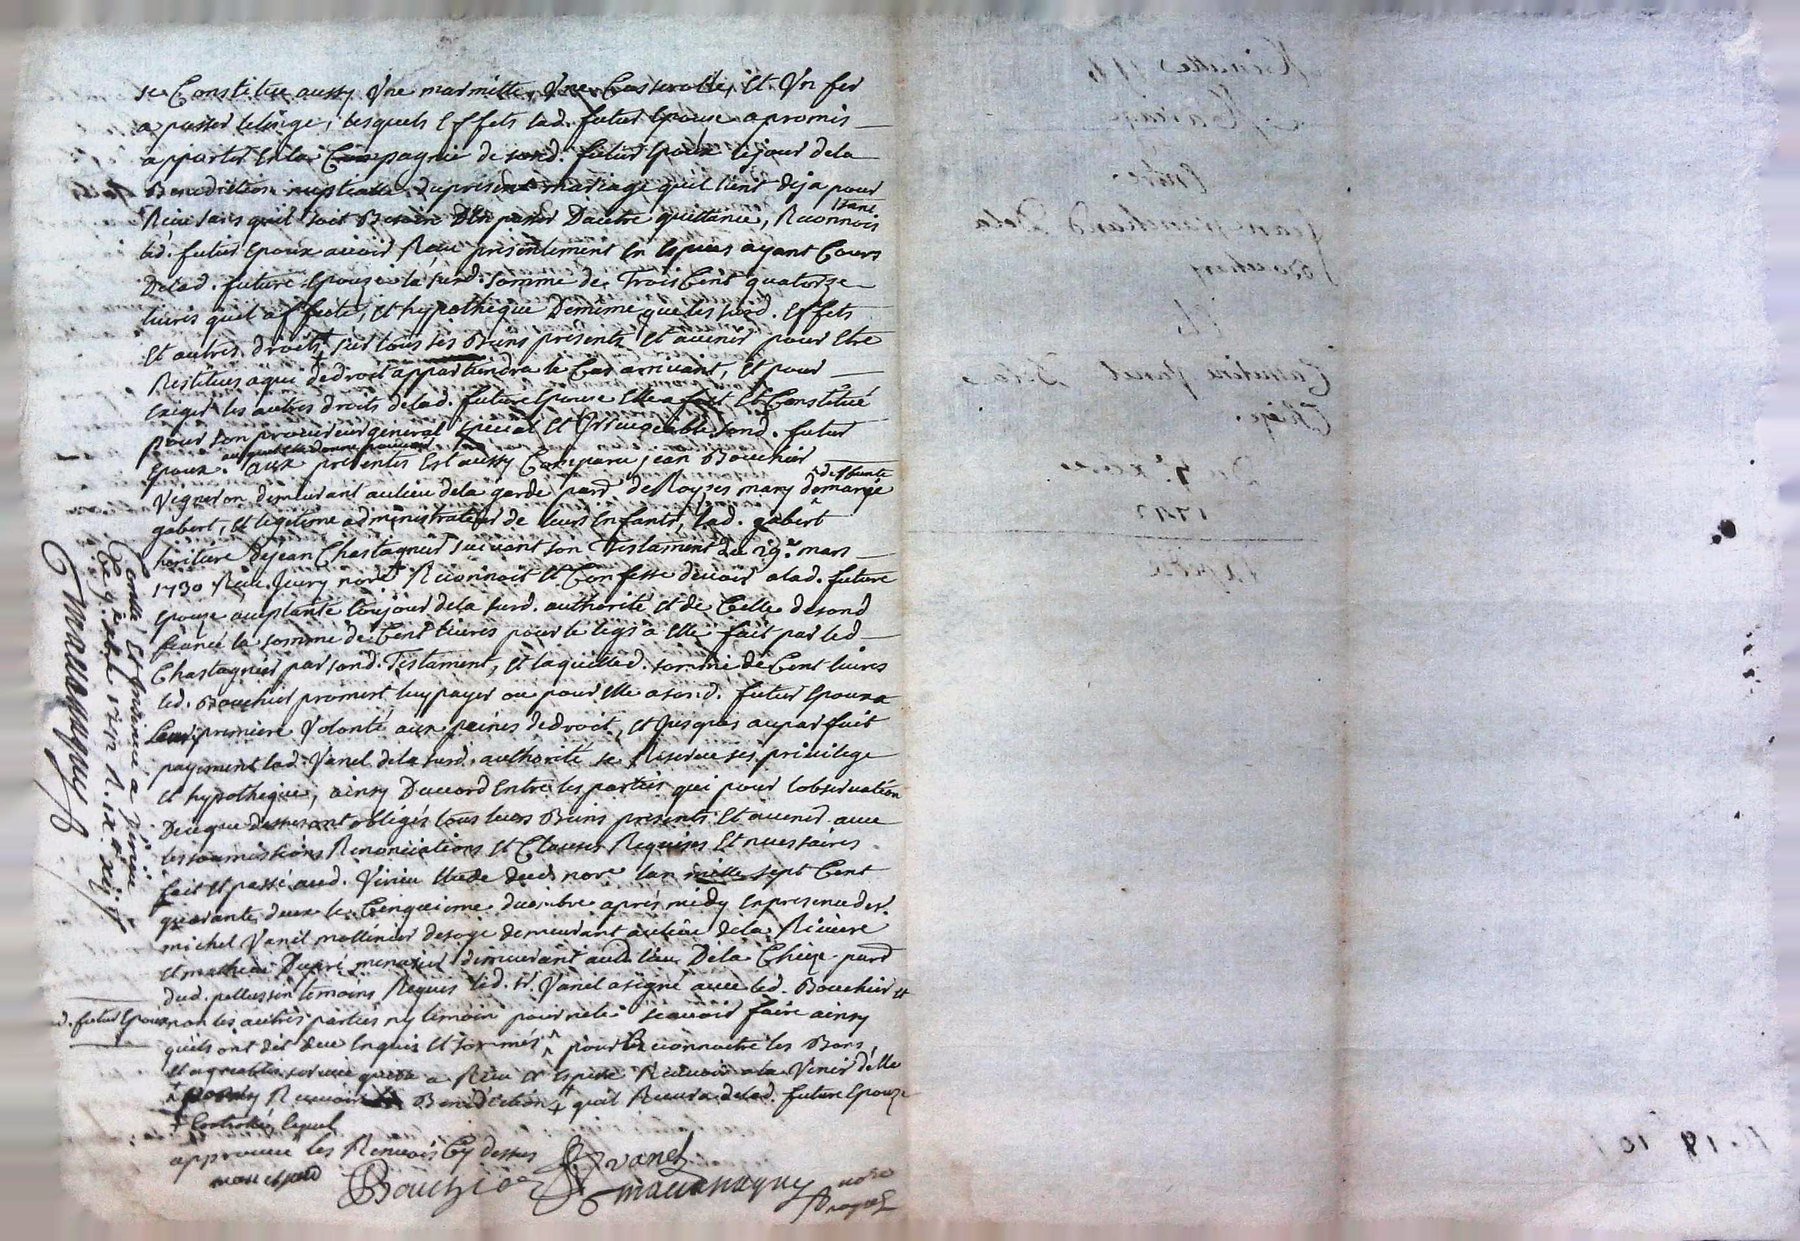 se Constitue aussy Une marmitte, Une Casserolle, Et Un fer
a passer le linge, lesquels Effets lad. future Epouse a promis
apporter En la Compagnie de sond. futur Epoux le jour de la
Benediction nuptialle du present mariage quil tient deja pour
Receu sans quil soit Besoin d'En passer Dautre quittance, Reconnois
sant
led. futur Epoux avoir Receu presentement En Especes ayant Cours
Delad. future Epouze la surd. somme de Trois Cent quatorze
livres quil affecte, et hypotheque De meme que les surd. Effets
Et autres droits, sur tous ses Biens presents Et avenir pour Etre
Restitues a qui de droit appartiendra le Cas arrivant, Et pour
Exiger les autres droits delad. future Epouse Elle a fait Et Constitué
pour son procureur general special Et Irrevocable sond. futur
Epoux. aux presentes Est aussy Comparu jean Bouchier
auquel Elle donne pouvoir
Vigneron demeurant au lieu de la garde parr. de Royses mary de marie
deffunte
gabert, et legitime administrateur de leurs Enfants, lad. gabert
heritiere de jean Chastagnier suivant son Testament du 29e mars
1730 Receu Jury nore Reconnoit Et Confesse devoir a lad. future
Epouze acceptante toujour de la surd. authorité et de Celle de sond
fiancé la somme de Cent livres pour le legs a Elle fait par led
Chastagnier par sond. Testament, Et laquelle d. somme de Cent livres
led. Bouchier promet luy payer ou pour Elle a sond. futur Epoux a
leur premiere Volonté aux peines de droit, et jusques au parfait
payement lad. Vanel de la surd. authorité se Reserve ses privilege
Et hypotheque, ainsy Daccord Entre les parties qui pour l'observation
De ce que dessus ont obligés tous leurs Biens presents Et avenir avec
les soumissions Renonciations et Clauses Requises Et necessaires
fait Et passé aud. Virieu Etude dud. nore lan mille sept Cent
quarante deux le Cinquieme decembre aprés midy En presence de sr
michel Vanel mollinier de soye demeurant au lieu de la Riviere
Et mathieu Dupré menager demeurant aud. lieu De la Chieze parr
dud. pellussin temoins Requis led. sr. Vanel a signé avec led. Bouchier et
d. futur Epoux non les autres parties ny temoin pour ne le sçavoir faire ainsy
quils ont dit de ce Enquis Et sommés pour Reconnoitre les Bons
Et agreables services quelle a Receu Et Espere Recevoir a la Venir d'Elle
Recevoir Benediction quil Recevra delad. future Epouze
lequel
approuvé les Renvois Cy dessus
Bouchier Vanel
mauvanay nore
Royal
Conllé, Et Insinué a
Ce 9e xbre 1742 R.
mauvanay
Minutte
Mariage
Entre
jean Bouchard Dela
Bouchery
Et
Vanel Dela
Chieze
Du 5e xbre
1742
Expedié